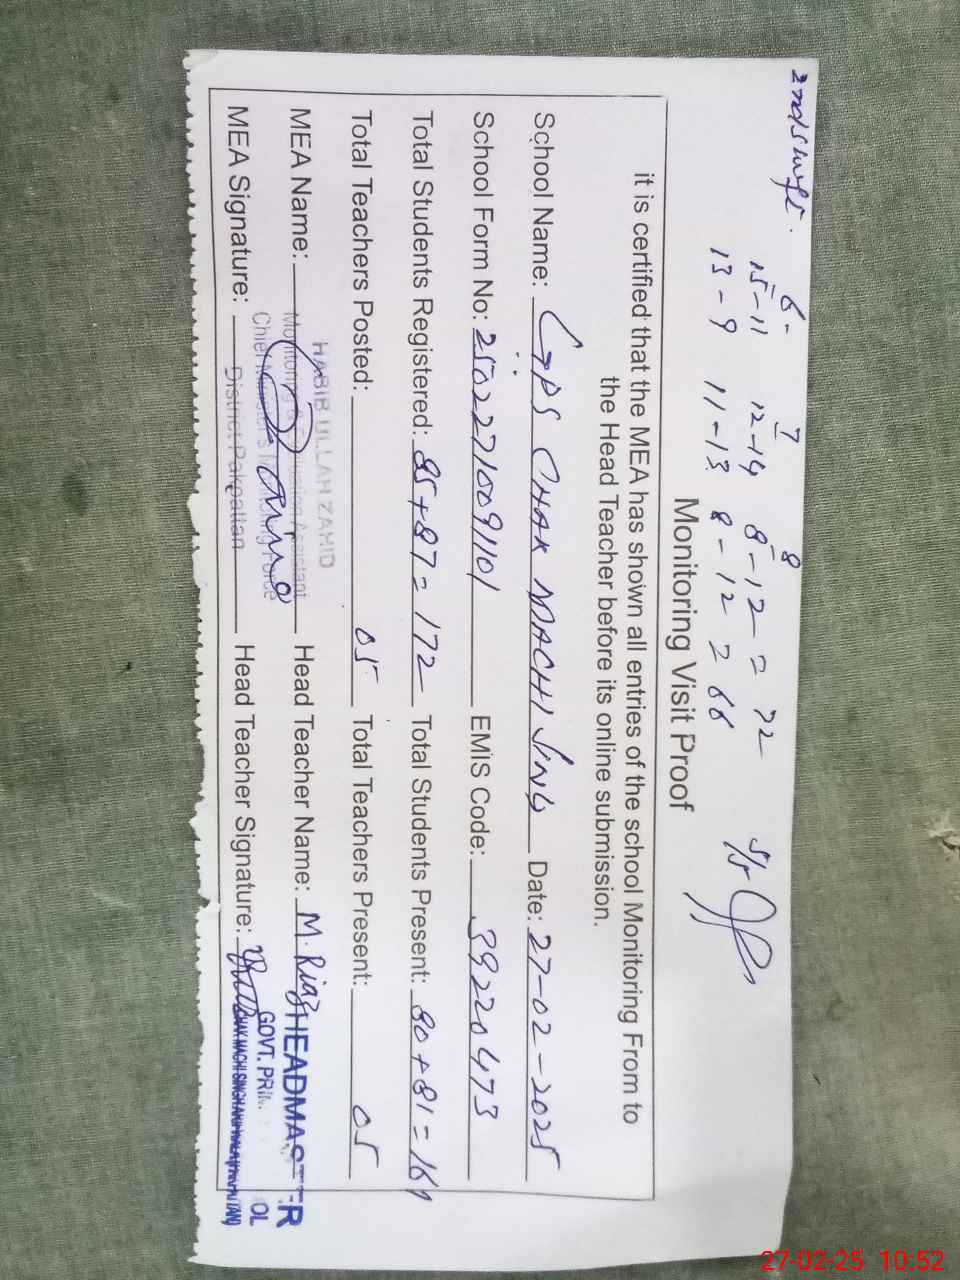 6 - 7 8
15-11 12-14 8-12 = 72
13-9 11-13 8-12 = 66
Monitoring Visit Proof
it is certified that the MEA has shown all entries of the school Monitoring From to
the Head Teacher before its online submission.
School Name: GPS CHAK MACHI SING Date: 27-02-2025
School Form No: 25022710091101 EMIS Code: 39220473
Total Students Registered: 85+87=172 Total Students Present: 80+81=161
Total Teachers Posted: 05 Total Teachers Present: 05
HABIB ULLAH ZAHID
MEA Name: Head Teacher Name: M. Riaz HEADMASTER
Monitoring & Evaluation Assistant
Chief Minister's Monitoring Force GOVT. PRIM. OL
MEA Signature: District Pakpattan Head Teacher Signature:
27-02-25 10:52